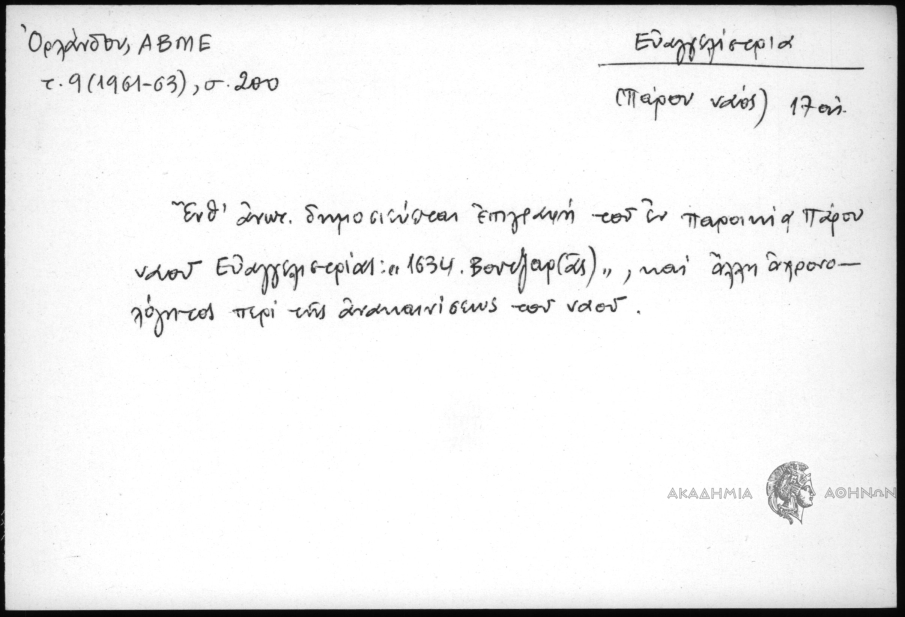 Ὀρλάνδου, ΑΒΜΕ
τ. 9 (1961-63), σ. 200
Εὐαγγελίστρια
(Πάρου ναός) 17 αἰ.
Ἔνθ' ἄνωτ. δημοσιεύεται ἐπιγραφὴ τοῦ ἐν Παροικίᾳ Πάρου
ναοῦ Εὐαγγελιστρίας: „1634. Βουτζαρ(ᾶς)", καὶ ἄλλη ἀχρονο-
λόγητος περὶ τῆς ἀνακαινίσεως τοῦ ναοῦ.
ΑΚΑΔΗΜΙΑ ΑΘΗΝΩΝ